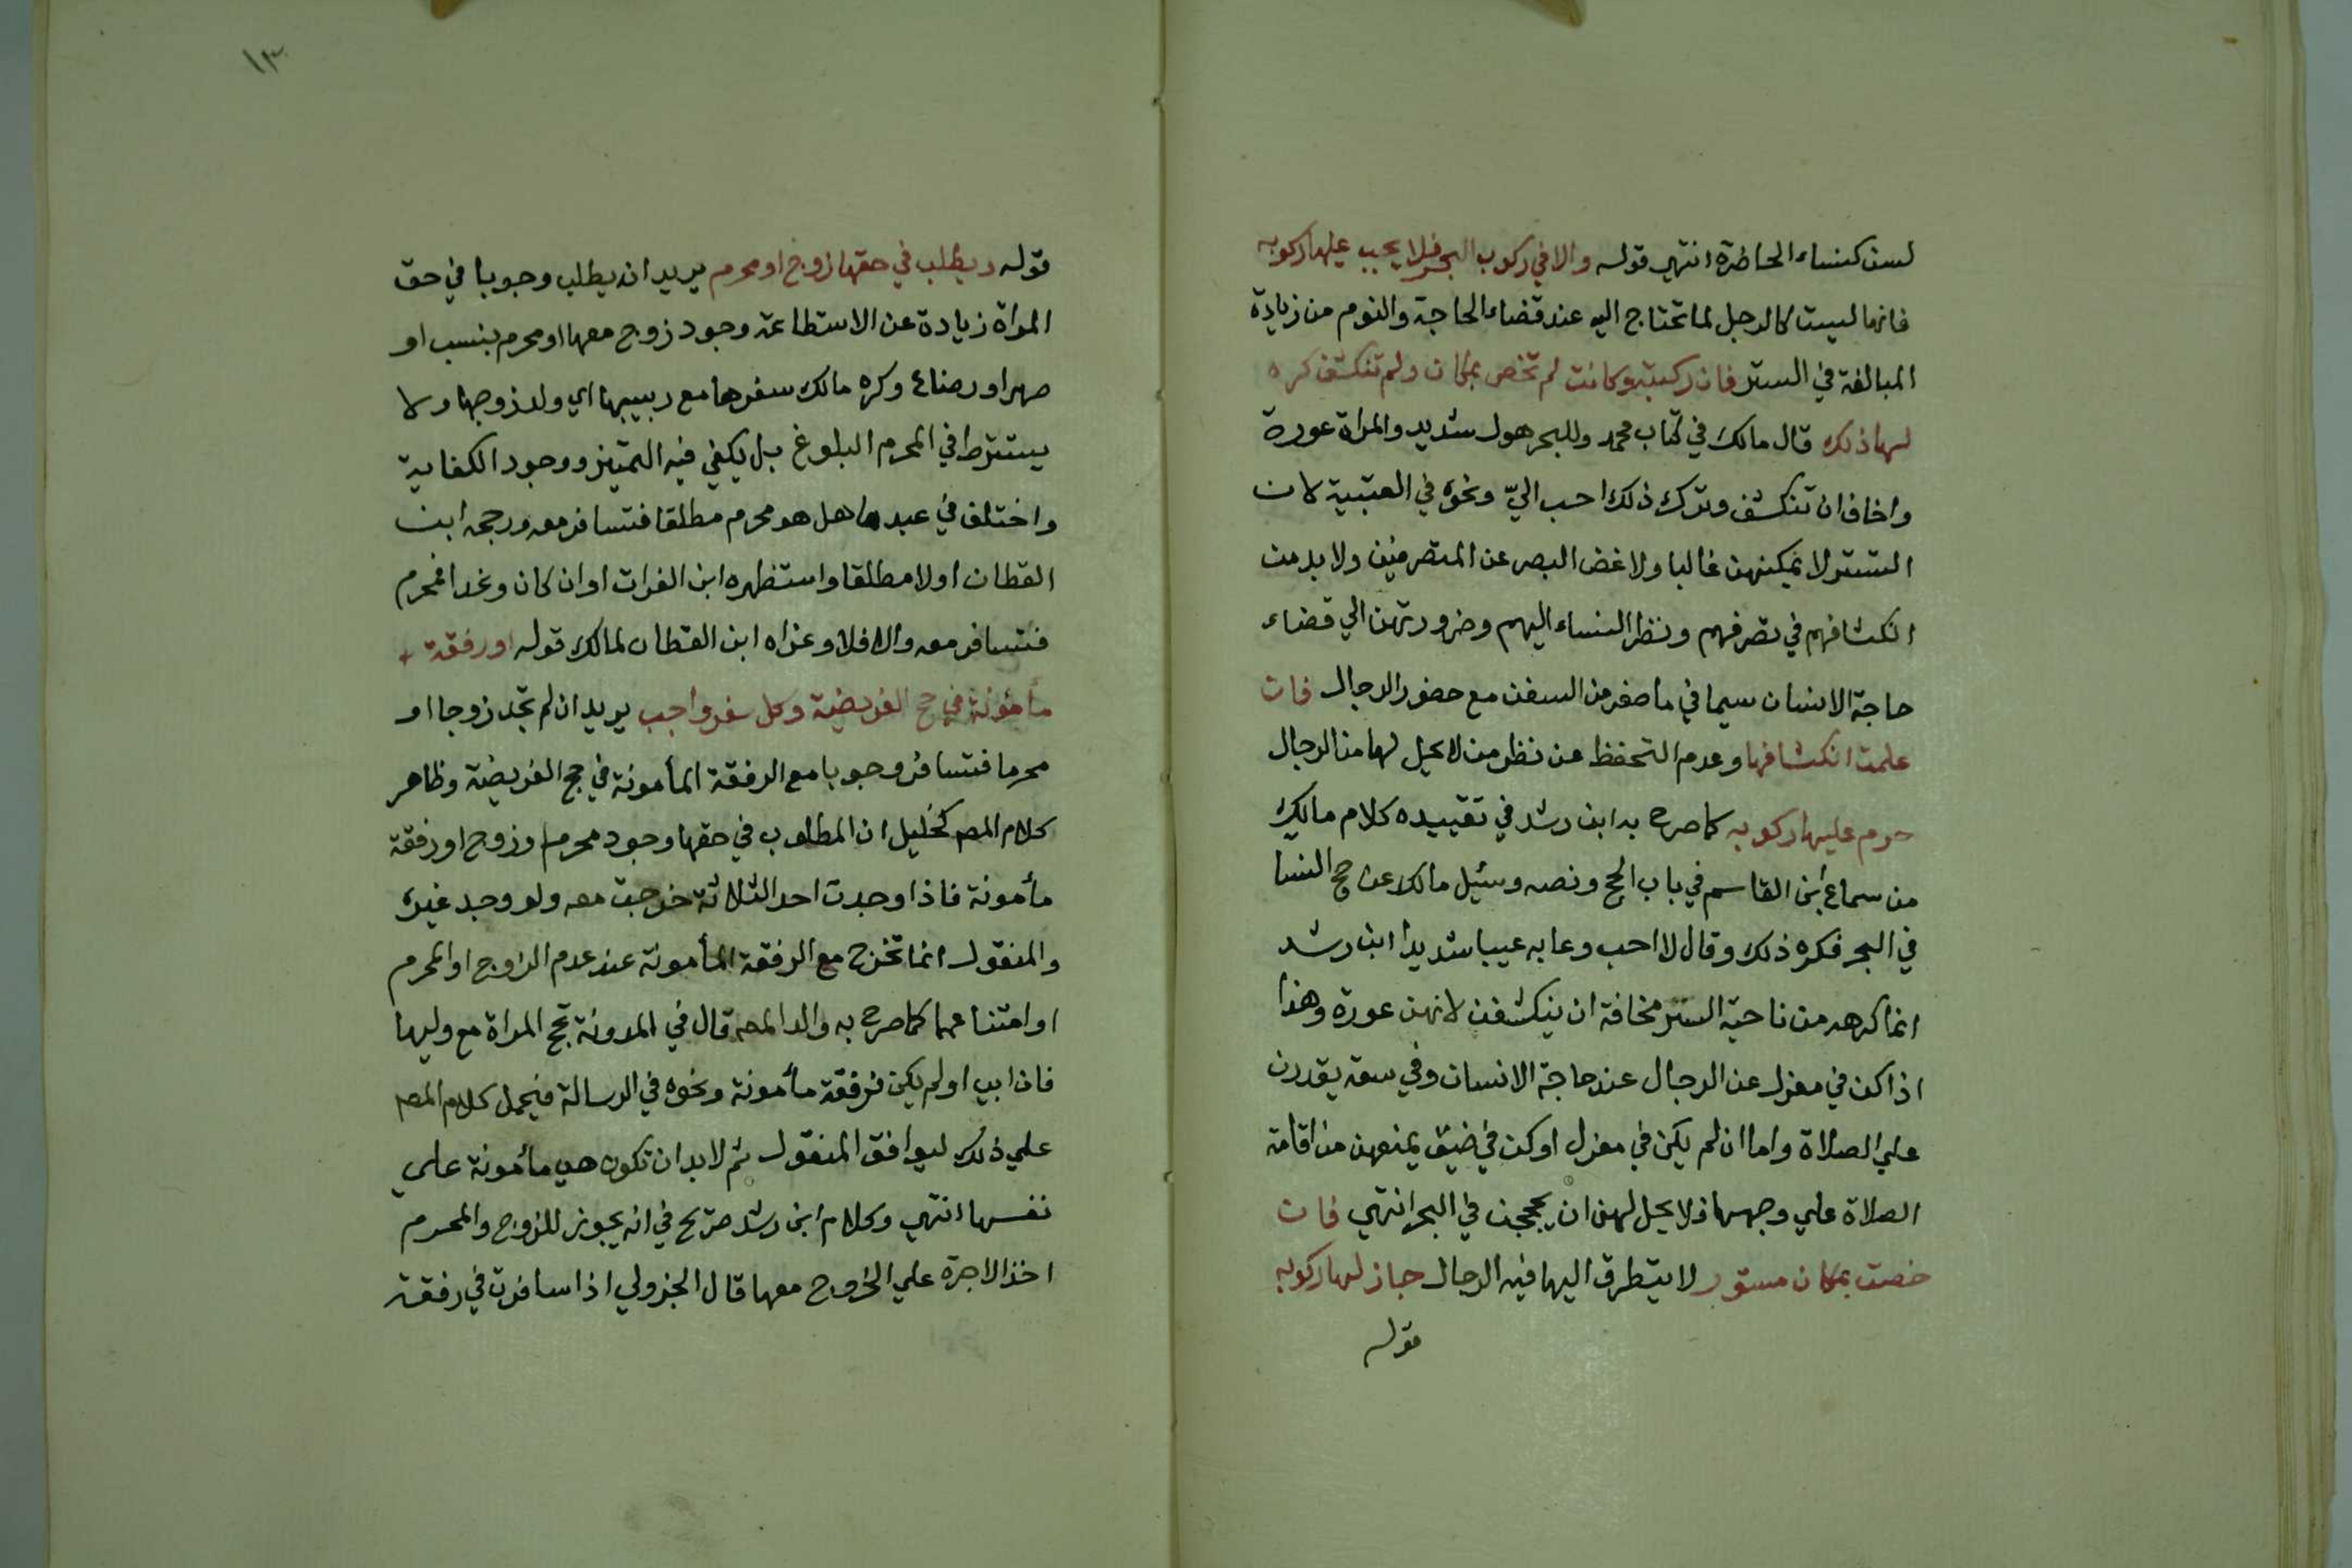 لسن كنساء الحاضرة انتهي قوله والا في ركوب البحر فلا يجب عليها ركوبه
فانها ليست كالرجل لما تحتاج اليه عند قضاء الحاجة والنوم من زيادة
المبالغة في الستر فان ركبته وكانت لم تخص بمكان ولم تنكشف كره
لها ذلك قال مالك في كتاب محمد وللبحر هول شديد والمراة عورة
واخاف ان تنكشف وترك ذلك احب اليّ ونحوه في العتبية لان
التستر لا يمكنهن غالبا ولا غض البصر عن المتصرفين ولا بد من
انكشافهم في تصرفهم ونظر النساء اليهم وضرورتهن الي قضاء
حاجة الانسان سيما في ما صغر من السفن مع حضور الرجال فان
علمت انكشافها وعدم التحفظ عن نظر من لا يحل لها من الرجال
حرم عليها ركوبه كما صرح به ابن رشد في تقييده كلام مالك
من سماع ابن القاسم في باب الحج ونصه وسئيل مالك عن حج النسا
في البحر فكره ذلك وقال لا احب وعابه عيبا شديدا ابن رشد
انما كرهه من ناحية الستر مخافة ان ينكشفن لانهن عورة وهذا
اذا كن في معزل عن الرجال عند حاجة الانسان وفي سعة يقدرن
علي الصلاة واما ان لم يكن في معزل او كن في ضيق يمنعهن من اقامة
الصلاة علي وجهها فلا يحل لهن ان يحججن في البحر انتهي فان
خصت بمكان مستور لا يتطرق اليها فيه الرجال جاز لها ركوبه
قوله
١٣
قوله ويطلب في حقها زوج او محرم يريد انه يطلب وجوبا في حق
المراة زيادة عن الاستطاعة وجود زوج معها او محرم بنسب او
صهر او رضاع وكره مالك سفرها مع ربيبها اي ولد زوجها ولا
يشترط في المحرم البلوغ بل يكفي فيه التميز ووجود الكفاية
واختلف في عبدها هل هو محرم مطلقا فتسافر معه ورجحه ابن
القطان اولا مطلقا واستظهره ابن الفرات او ان كان وغدا فمحرم
فتسافر معه والا فلا وعزاه ابن القطان لمالك قوله او رفقة
مأمونة في حج الفريضة وكل سفر واجب يريد ان لم تجد زوجا او
محرما فتسافر وجوبا مع الرفقة المأمونة في حج الفريضة وظاهر
كلام المص كخليل ان المطلوب في حقها وجود محرم او زوج او رفقة
مأمونة فاذا وجدت احد الثلاثة خرجت معه ولو وجد غيره
والمنقول انما تخرج مع الرفقة المأمونة عند عدم الزوج او المحرم
او امتناعهما كما صرح به والد المص قال في المدونة تحج المراة مع وليها
فان ابي او لم يكن فرفقة مأمونة ونحوه في الرسالة فيحمل كلام المص
علي ذلك ليوافق المنقول ثم لا بد ان تكون هي مأمونة علي
نفسها انتهي وكلام ابن رشد صريح في انه يجوز للزوج والمحرم
اخذ الاجرة علي الخروج معها قال الجزولي اذا سافرت في رفقة